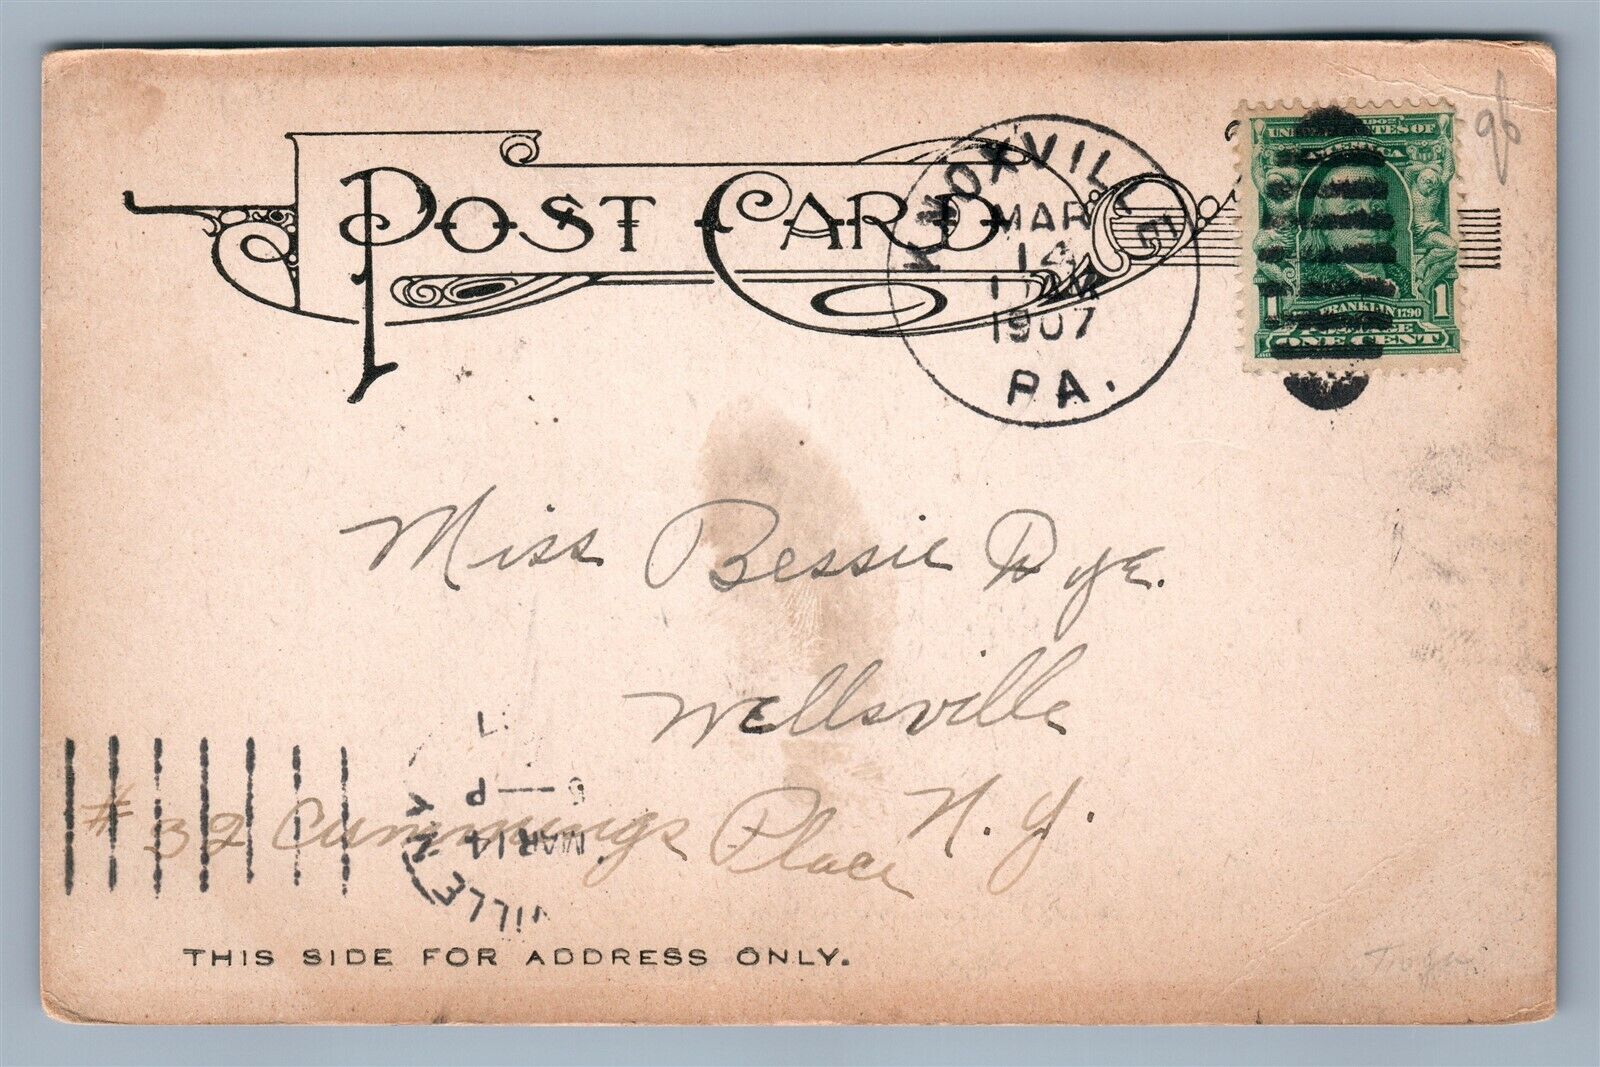 POST CARD
KNOXVILLE
MAR
14
1907
PA.
1902
UNITED STATES OF
AMERICA
1 FRANKLIN 1790 1
POSTAGE
ONE CENT
Miss Bessie Dye.
Wellsville
N.Y.
# 32 Cummings Place
VILLE N.Y.
MAR 14
6 — P
THIS SIDE FOR ADDRESS ONLY.
Tioga